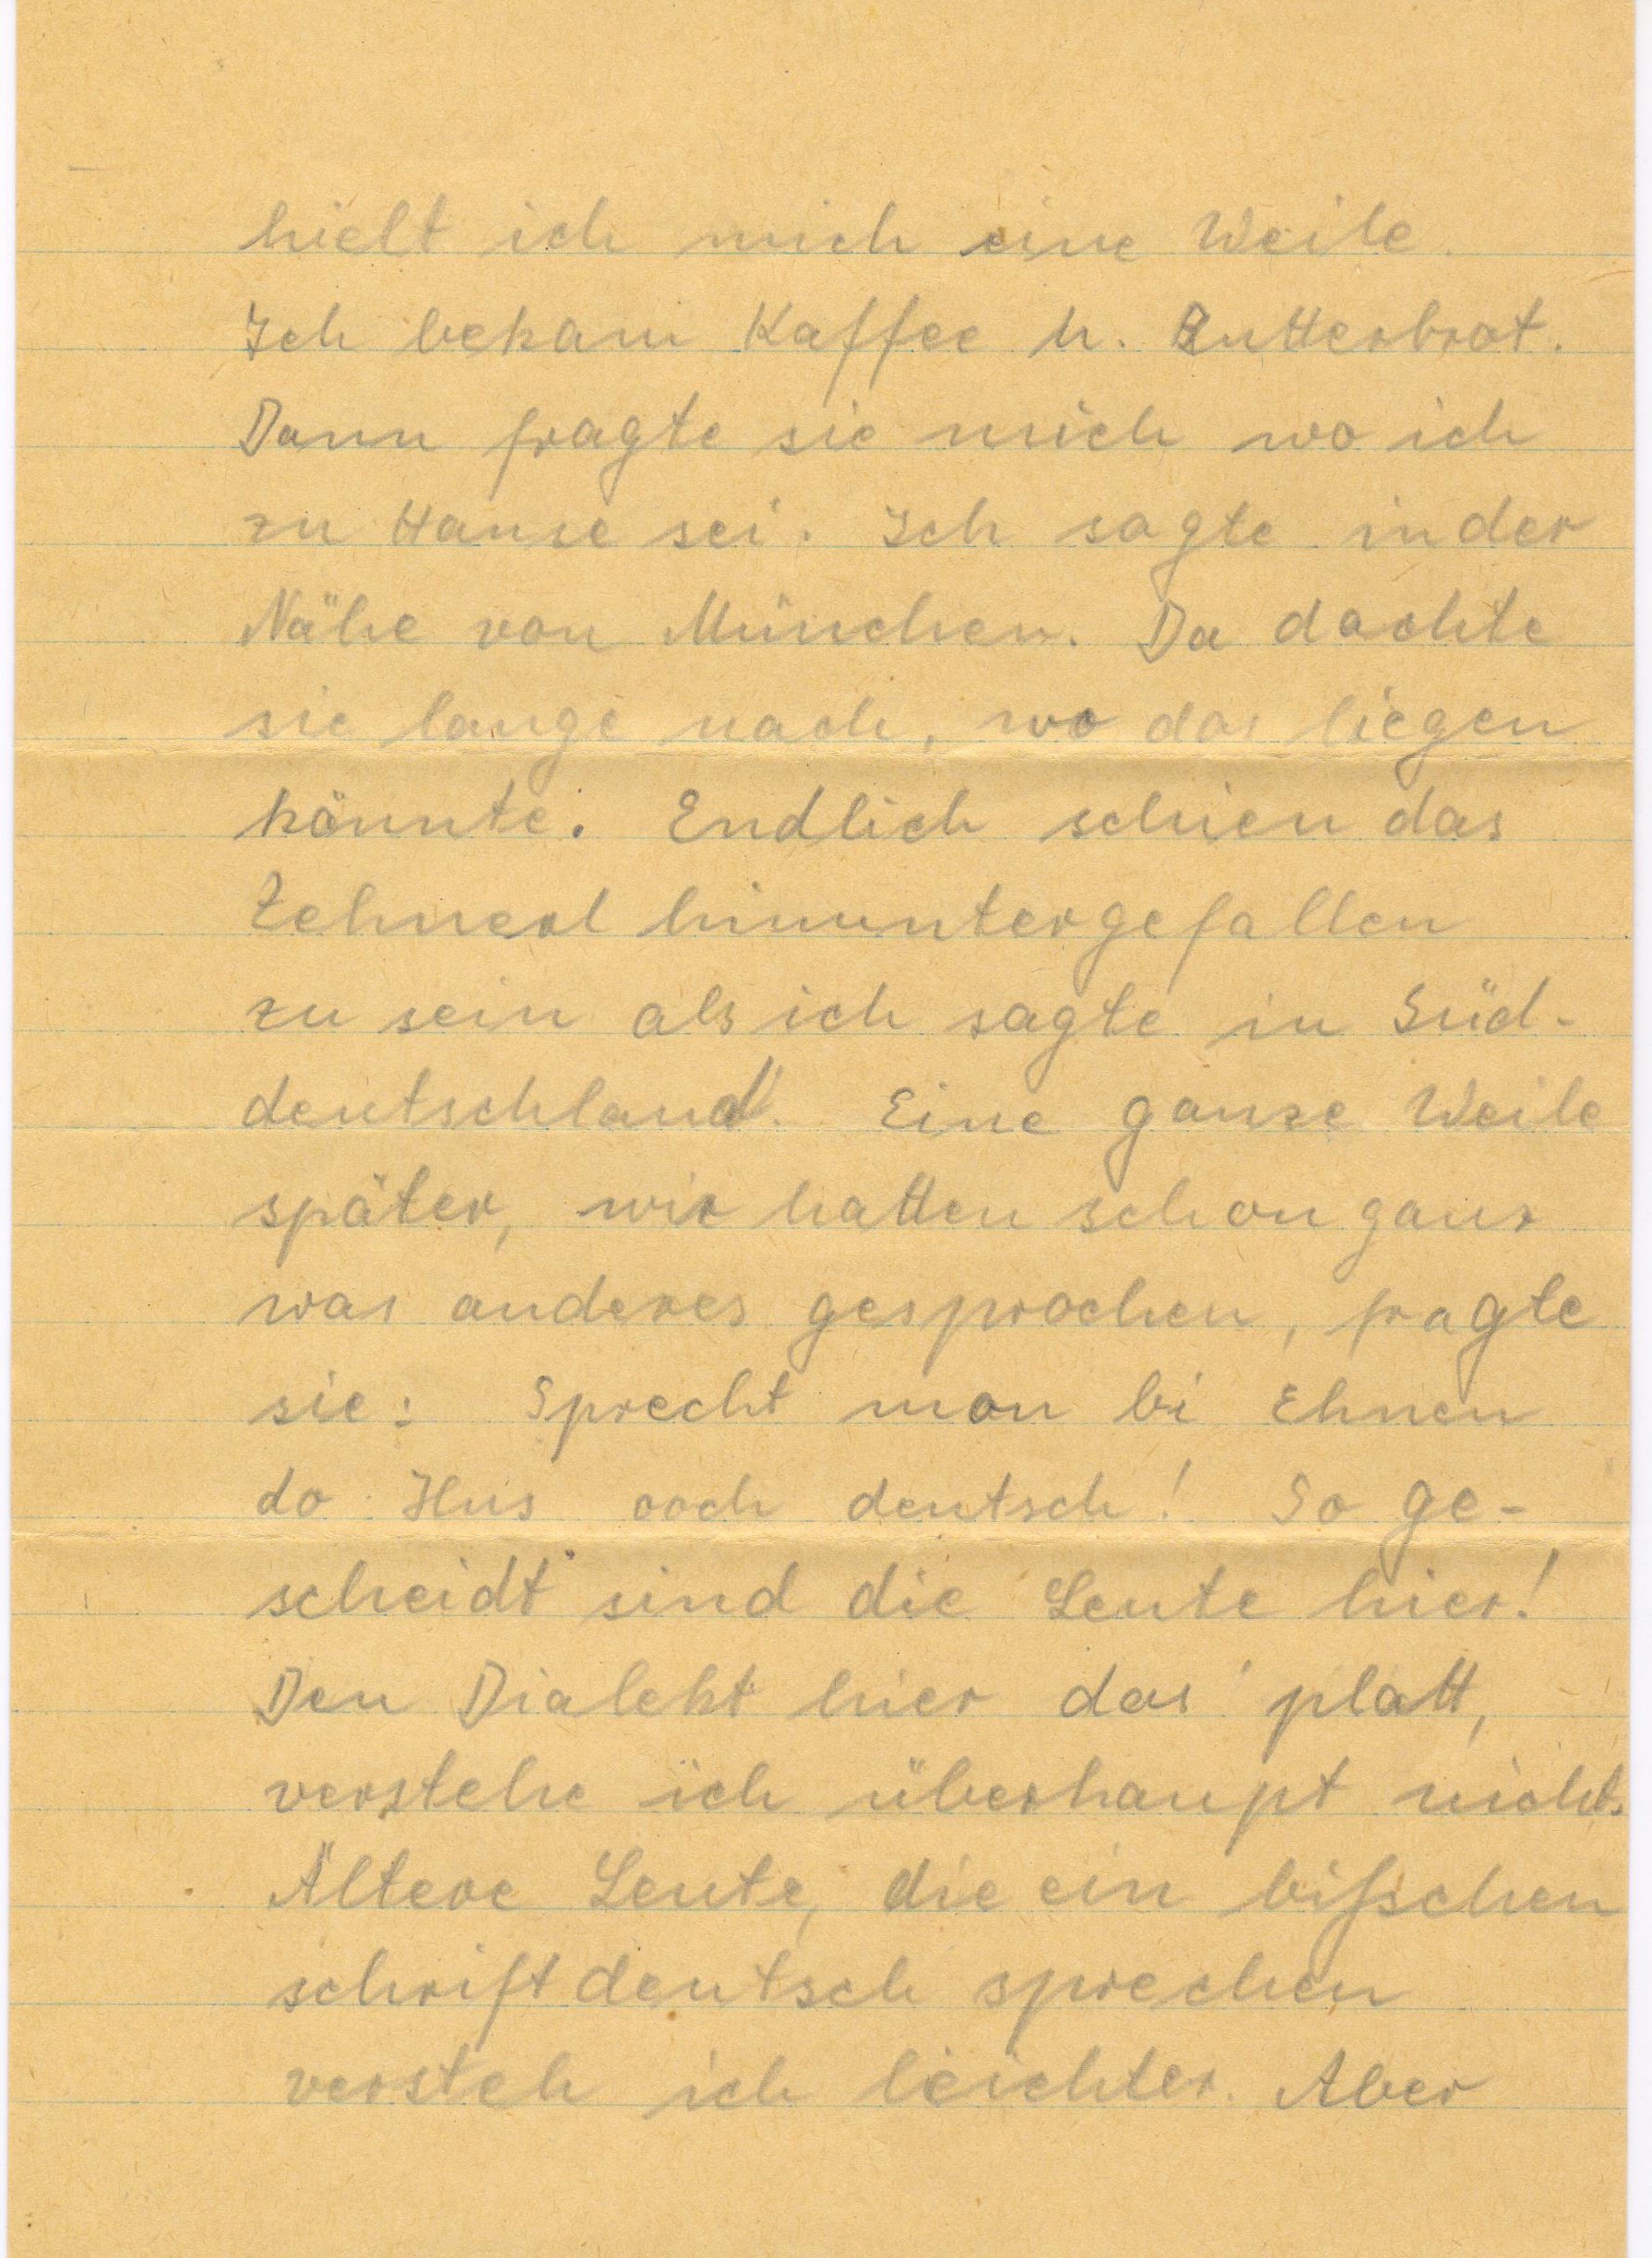 hielt ich mich eine Weile.
Ich bekam Kaffee u. Butterbrot.
Dann fragte sie mich wo ich
zu Hause sei. Ich sagte in der
Nähe von München. Da dachte
sie lange nach, wo das liegen
könnte. Endlich schien das
Zehnerl hinuntergefallen
zu sein als ich sagte in Süd-
deutschland. Eine ganze Weile
später, wir hatten schon ganz
was anderes gesprochen, fragte
sie: Sprecht man bi Ehnen
do Hus ooch deutsch! So ge-
scheidt sind die Leute hier!
Den Dialekt hier das platt,
verstehe ich überhaupt nicht.
Ältere Leute, die ein bißchen
schriftdeutsch sprechen
versteh ich leichter. Aber